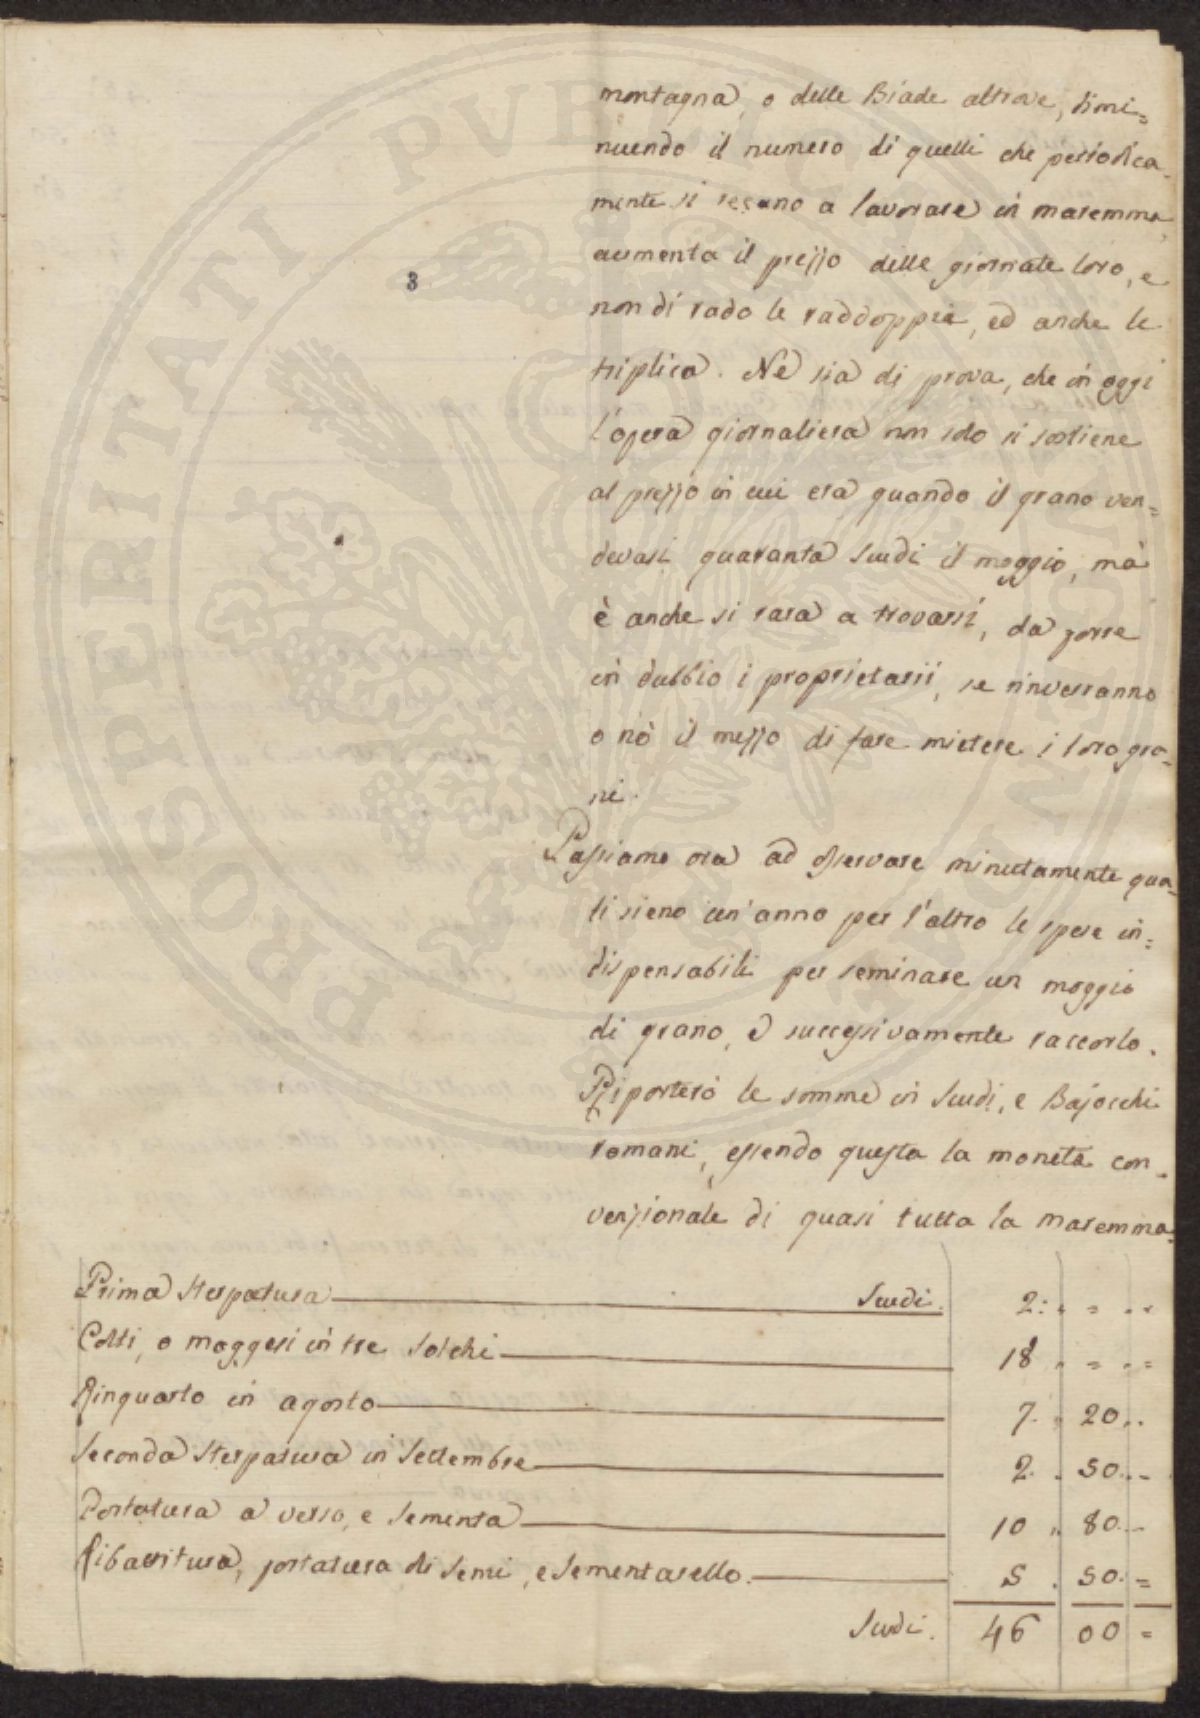 montagna, o delle Biade altrove, dimi=
nuendo il numero di quelli che periodica-
mente si recano a lavorare in maremma,
aumenta il prezzo delle giornate loro, e
non di rado le raddoppia, ed anche le
triplica. Nè sia di prova, che in oggi
l'opera giornaliera non solo si sostiene
al prezzo in cui era quando il grano ven=
devasi quaranta Scudi il moggio, mà
è anche si rara a trovarsi, da porre
in dubbio i proprietarii, se rinverranno
o nò il mezzo di fare mietere i loro gra-
ni.
Passiamo ora ad osservare minutamente qua-
li sieno un'anno per l'altro le spese in=
dispensabili per seminare un moggio
di grano, e successivamente raccorlo.
Riporterò le somme in Scudi, e Bajocchi
romani, essendo questa la moneta con-
venzionale di quasi tutta la maremma.
Prima Sterpatura Scudi. 2: " = " "
Colti, o maggesi in tre Solchi 18 " = " =
Rinquarto in agosto 7. " 20 " "
Seconda Sterpatura in Settembre 2. . 50. " -
Portatura a verso, e Sementa 10 " 80. -
Ribattitura, portatura di Semi, e Sementarello. 5 . 50. =
Scudi. 46 00 =
3
PROSPERITATI PVBLICAE AVGENDAE